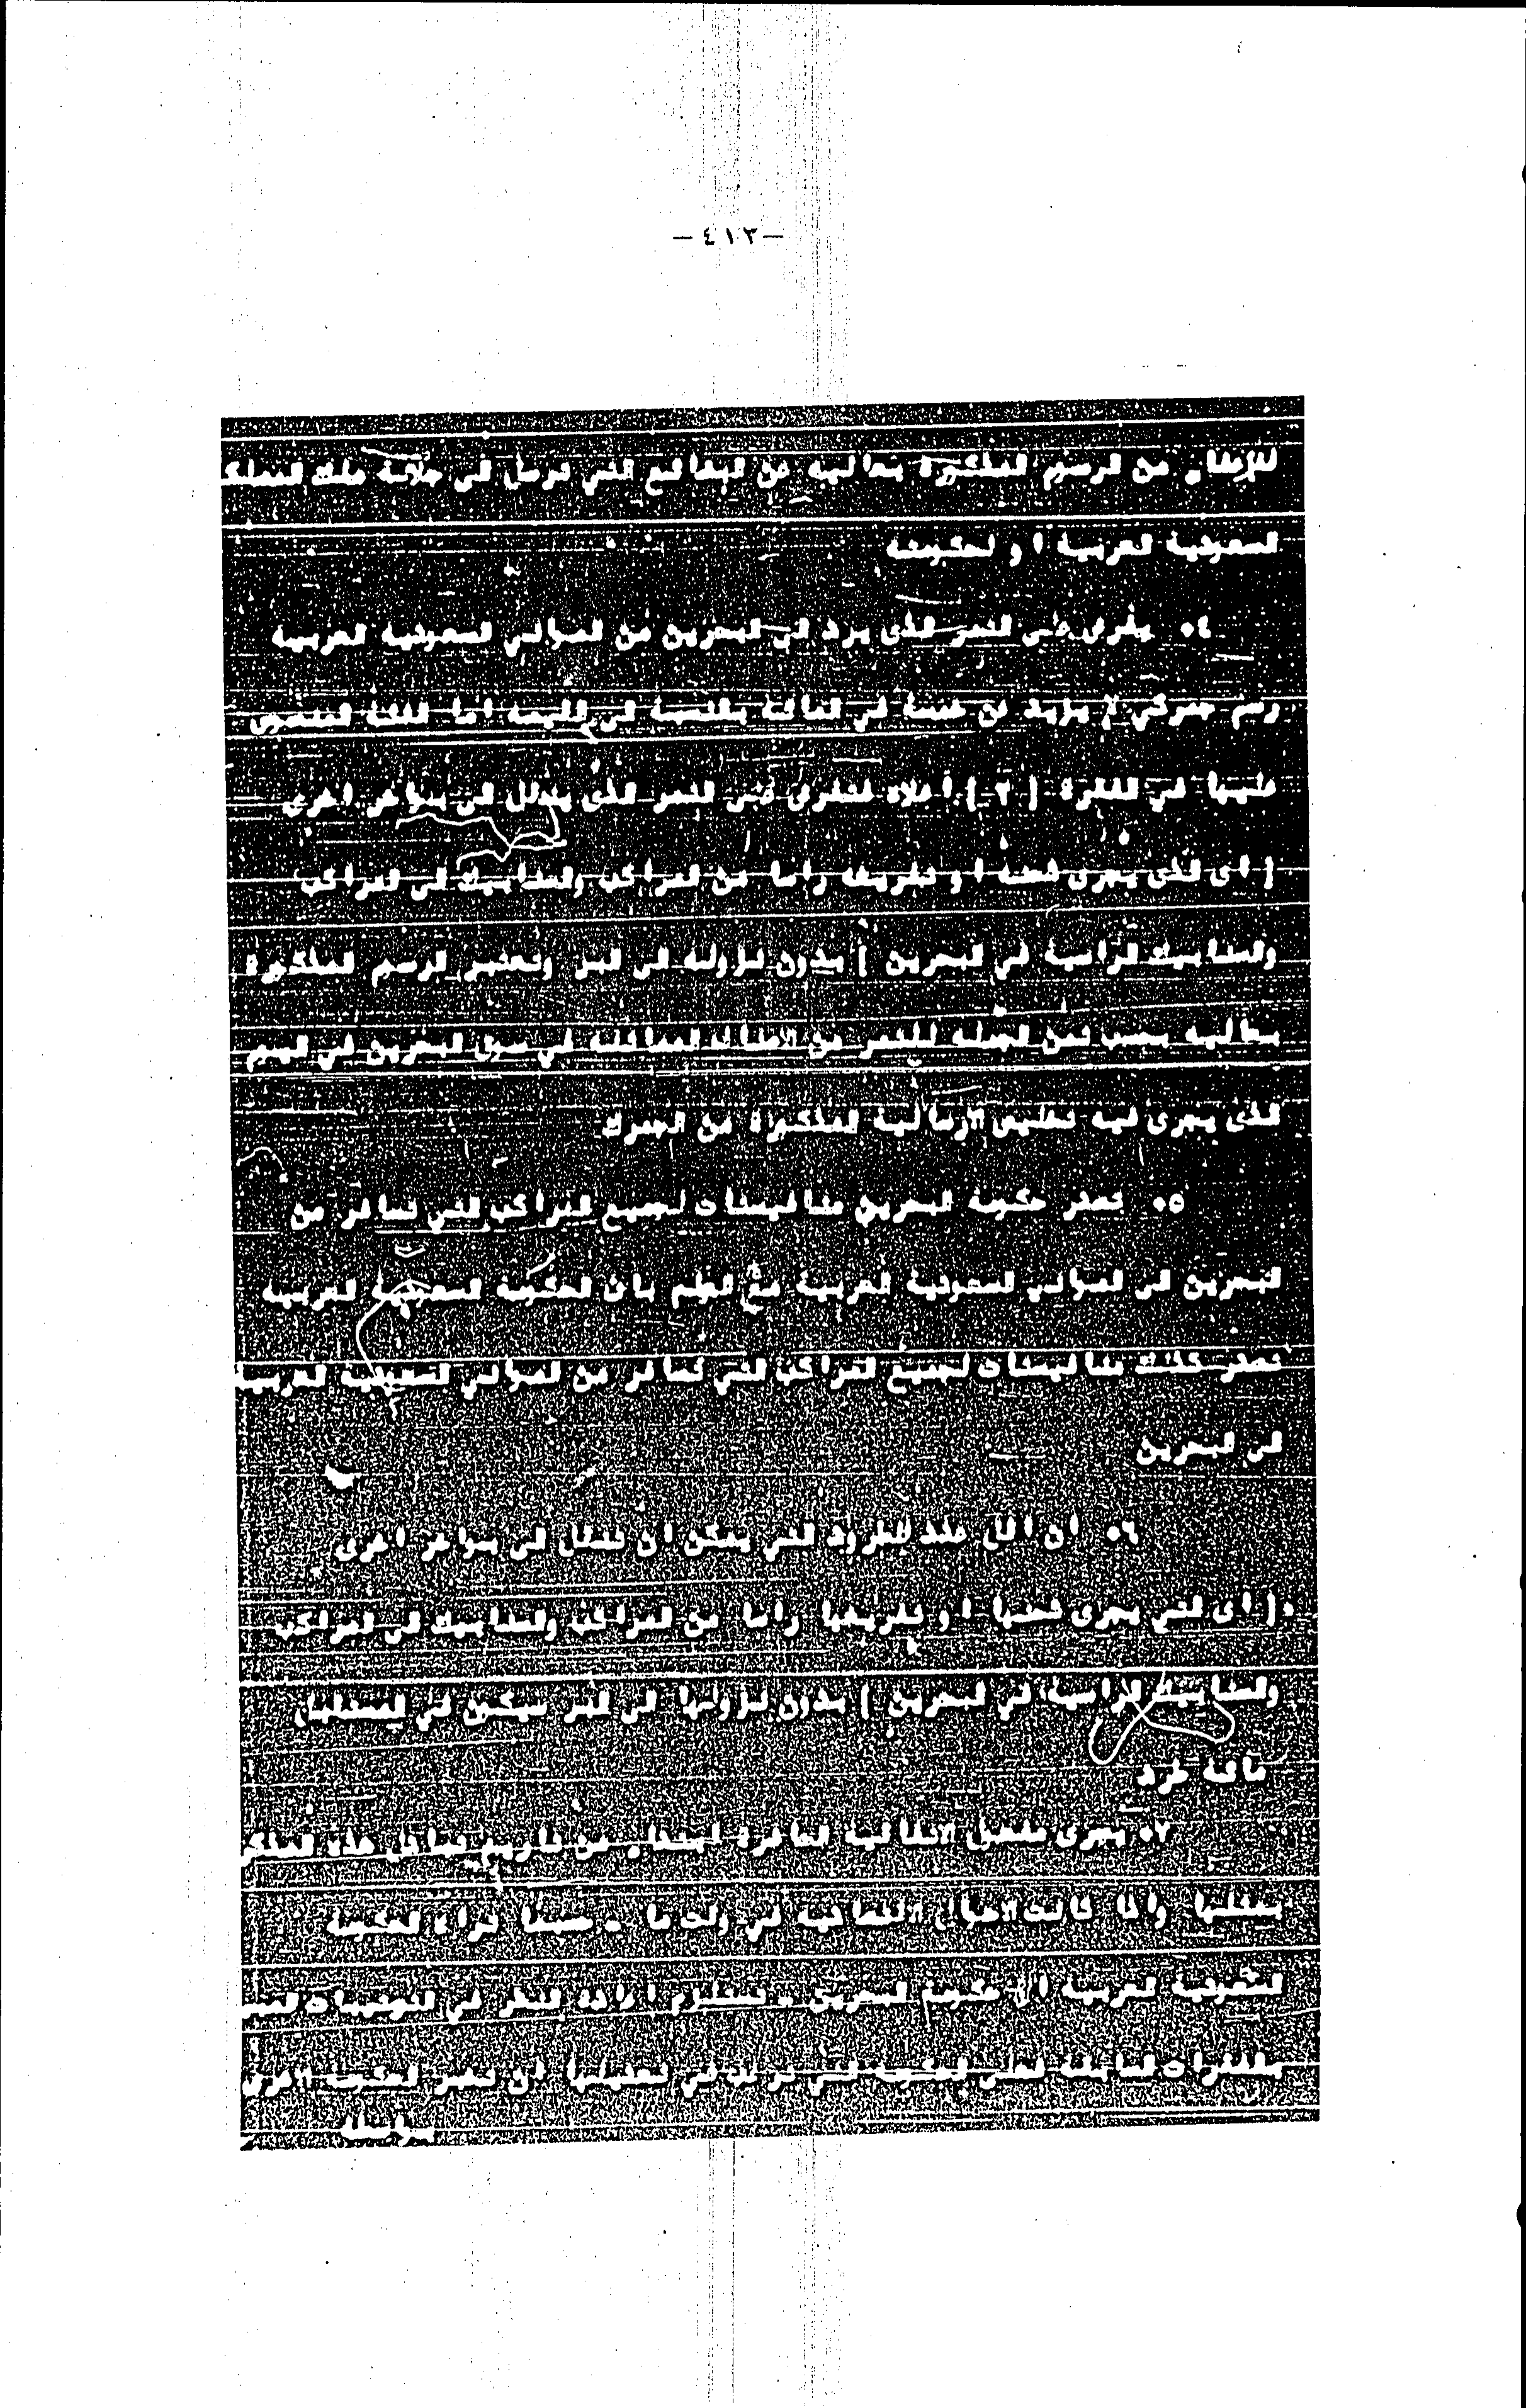 -٤١٢-
للإعفاء من الرسوم المذكورة بتاتا ليه عن البضائع التي ترسل الى جلالة ملك المملكة
السعودية العربية او لحكومته
٤٠ يفرض على التمر الذى يرد الى البحرين من الموانى السعودية العربية
رسم جمركي لا يزيد عن خمسة في المائة بالنسبة الى القيمة اما الفئة المنصوص
عليها في الفقرة (٢) اعلاه فتفرض على التمر الذى ينقل الى بواخر اخرى
( اى الذى يجرى شحنه او تفريغه راسا من المراكب والصنابيك الى المراكب
والصنابيك الراسية في البحرين ) بدون نزوله الى البر وتعتبر الرسوم المذكورة
بحسب ثمن الجملة للتمر من الاصناف المماثلة في سوق البحرين في اليوم
الذى يجرى فيه تخليص الارسالية المذكورة من الجمرك
٥٠ تصدر حكومة البحرين منافيستات لجميع المراكب التي تسافر من
البحرين الى الموانى السعودية العربية مع العلم بان الحكومة السعودية العربية
تصدر كذلك منافيستات لجميع المراكب التي تسافر من الموانى السعودية العربية
الى البحرين
٦٠ ان اقل عدد الطرود التي يمكن ان تنقل الى بواخر اخرى
( اى التي يجرى شحنها او تفريغها راسا من المراكب والصنابيك الى المراكب
والصنابيك الراسية في البحرين ) بدون نزولها الى البر سيكون في المستقبل
مائة طرد
٧٠ يجرى مفعول الاتفاقية الحاضرة
واذا كانت احوال الاقتصادية في وقت ما - حسبما تراه الحكومة
السعودية العربية او حكومة البحرين - تستلزم اعادة النظر في